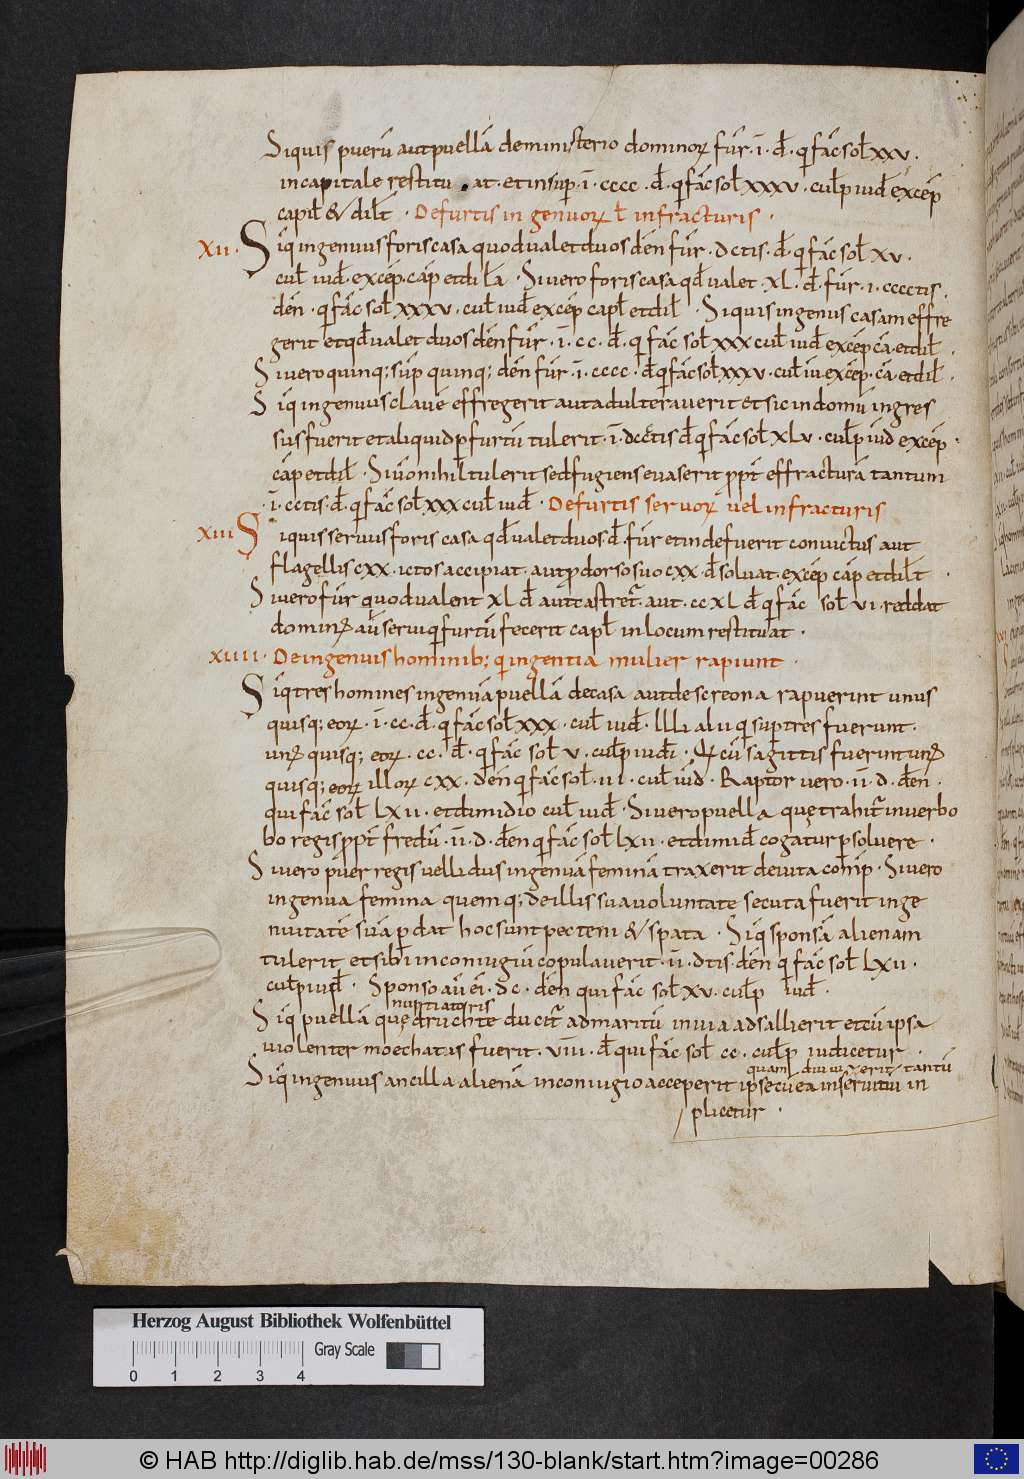 Siquis puerū aut puellā deministerio dominoꝝ fur̄. ī. đ. q̄ fac̄ sol xxv.
incapitale restitu at. et insup̄. ī. cccc. đ. q̄ fac̄ sol xxxv. culp iud excep̄
capit & dilt. Defurtis ingenuoꝝ ł infracturis.
XII. Siq̄ ingenuus foris casa quod ualet duos den̄ fur̄. dctis. đ. q̄ fac̄ sol xv.
cul iud. excep̄. cap̄ et dila. Siuero foris casa qd ualet xl. đ. fur̄. ī. cccctis.
den̄. q̄ fac̄ sol xxxv. cul iud excep̄ capl et dil. Siquis ingenus casam effre
gerit et qd ualet duos den̄ fur̄. ī. cc. đ. q̄ fac̄ sol xxx cul iud excep̄ ca. et dil.
Siuero quinq; sup̄ quinq; den̄ fur̄. ī. cccc. đ q̄ fac̄ sol xxxv. cul iu excep̄. ca. et dil.
Siq̄ ingenuus claue effregerit aut adulterauerit et sic in domū ingres
sus fuerit et aliquid p̄ furtū tulerit. ī. dcctis đ q̄ fac̄ sol xlv. culp iud excep̄.
cap̄ et dil. Siuō nihil tulerit sed fugiens euaserit ppt̄ effracturā tantum
ī. cctis. đ. q̄ fac̄ sol xxx cul iud. Defurtis seruoꝝ uel infracturis
XIII Siquis seruus foris casa qd ualet duos. đ. fur̄ et inde fuerit conuictus aut
flagellis cxx. ictos accipiat. aut p dorso suo cxx. đ soluat. excep̄ cap̄ et dilt.
Siuero fur̄ quod ualent xl đ aut castret̄. aut. ccxl đ q̄ fac̄ sol vi. reddat
domin̄ au seruiq̄ furtū fecerit capl in locum restituat.
XIIII. Deingenuis hominib; q̄ ingentia mulier rapiunt.
Siq̄ tres homines ingenuā puellā decasa aut descreona rapuerint unus
quisq; eoꝝ. ī. cc. đ. q̄ fac̄ sol xxx. cul iud. Illi alii q̄ sup tres fuerunt.
un̄ quisq; eoꝝ. cc. đ. q̄ fac̄ sol v. culp iud. Q̄ cū sagittis fuerint un̄
quisq; eoꝝ illoꝝ cxx. den̄ q̄ fac̄ sol. iii. cul iud. Raptor uero. īī. d. den̄.
qui fac̄ sol lxii. et dimidio cul iud. Siuero puella quę trahit̄ inuerbo
bo regis ppt̄ fredū. īī. d. den̄ q̄ fac̄ sol lxii. et dimid cogatur psoluere.
Siuero puer regis uel lidus ingenuā feminā traxerit deuita conp̄. Siuero
ingenua femina quemq; deillis sua uoluntate secuta fuerit inge
nuitatē suā p̄dat hoc sunt pecteni & spata. Siq̄ sponsā alienam
tulerit et sibi in coniugiū copulauerit. īī. dtis. den̄ q̄ fac̄ sol lxii.
culp iud. Sponso au ei. dc. den̄ qui fac̄ sol xv. culp iud.
nuptiatoris
Siq̄ puellā quę druchte ducit̄ ad maritū in uia adsallierit et cū ipsa
uiolenter moechatus fuerit. viii. đ qui fac̄ sol cc. culp iudicetur.
Siq̄ ingenuus ancilla alienā in coniugio acceperit ip̄se cū ea in seruitiū in
plicetur.
Herzog August Bibliothek Wolfenbüttel
Gray Scale
0 1 2 3 4
© HAB http://diglib.hab.de/mss/130-blank/start.htm?image=00286